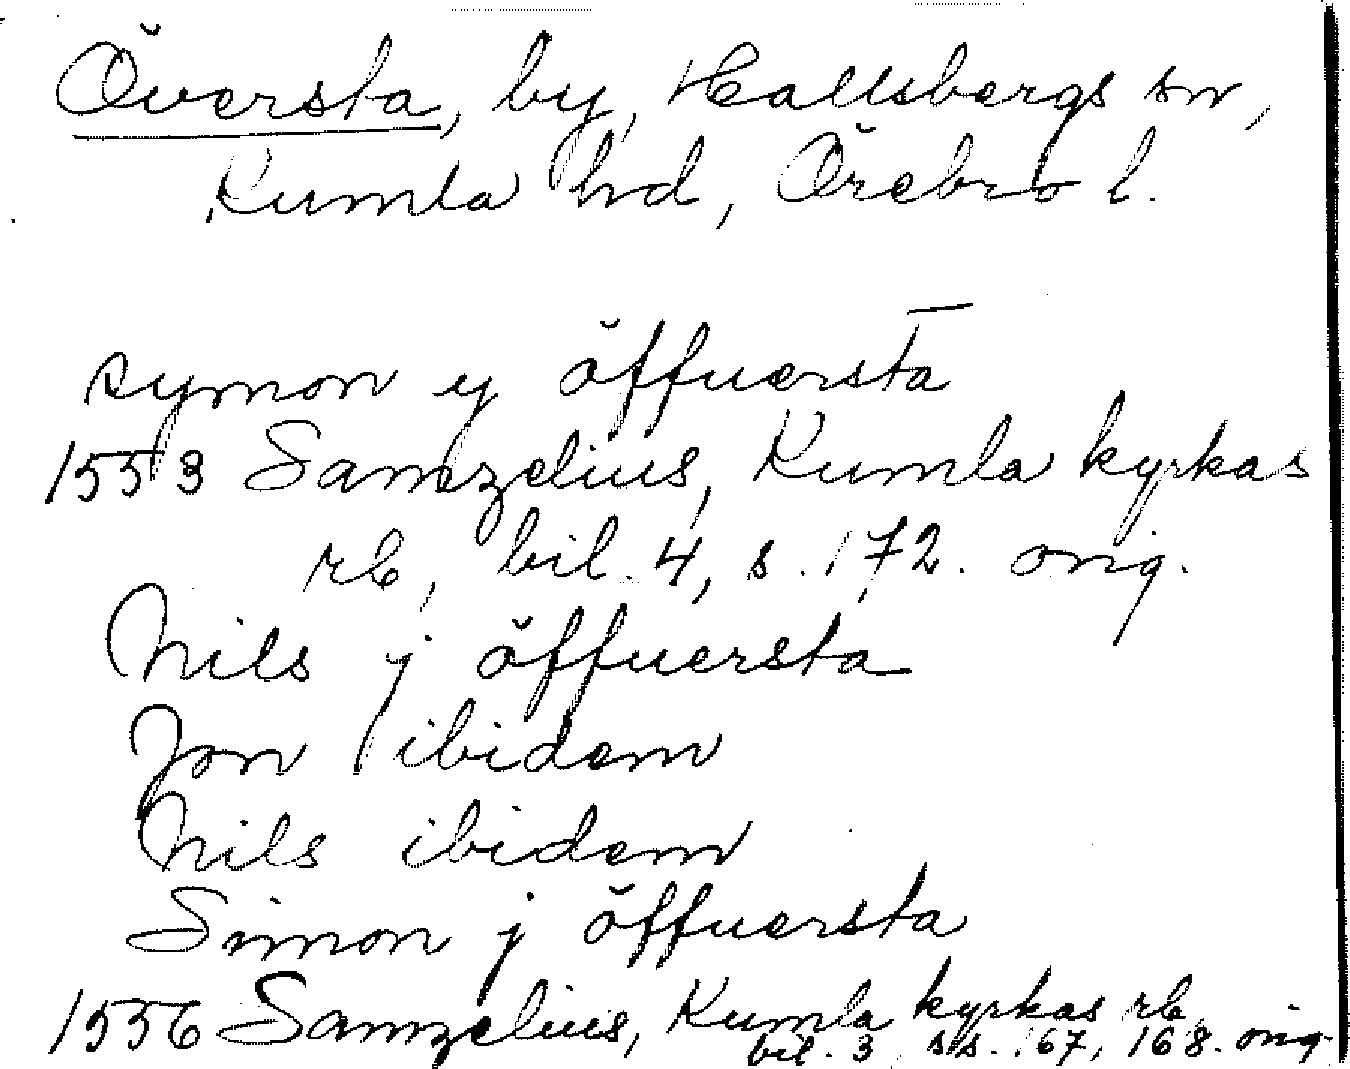 Översta, by, Hallsbergs sn,
Kumla hd, Örebro l.
symon y öffuersta
1553 Samzelius, Kumla kyrkas
rb, bil. 4, s. 172. orig.
Nils j öffuersta
Jon ibidem
Nils ibidem
Simon j öffuersta
1556 Samzelius, Kumla kyrkas rb,
bil. 3, ss. 167, 168. orig.